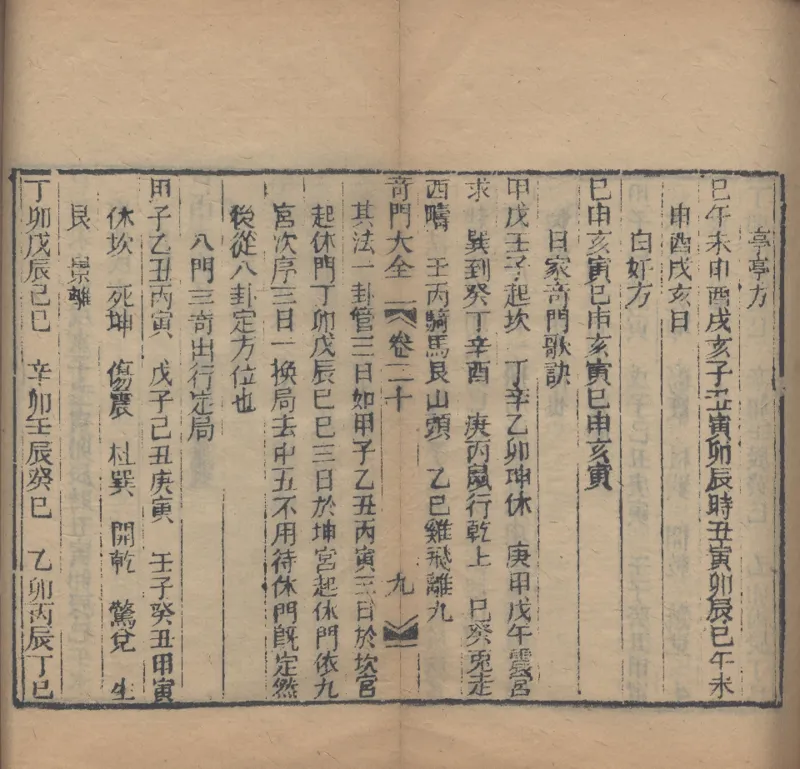 亭亭方
巳午未申酉戌亥子丑寅卯辰時丑寅卯辰巳午未
申酉戌亥日
白奸方
巳申亥寅巳申亥寅巳申亥寅
日家奇門歌訣
甲戊壬子起坎 丁辛乙卯坤休 庚甲戊午震宮
求 巽到癸丁辛酉 庚丙鼠行乾上 巳癸兎走
西疇 壬丙騎馬艮山頭 乙巳雞飛離九
奇門大全 卷二十 九
其法一卦管三日如甲子乙丑丙寅三日於坎宮
起休門丁卯戊辰巳巳三日於坤宮起休門依九
宮次序三日一換局去中五不用待休門旣定然
後從八卦定方位也
八門三奇出行定局
甲子乙丑丙寅 戊子己丑庚寅 壬子癸丑甲寅
休坎 死坤 傷震 杜巽 開乾 驚兌 生
艮 景離
丁卯戊辰己巳 辛卯壬辰癸巳 乙卯丙辰丁巳